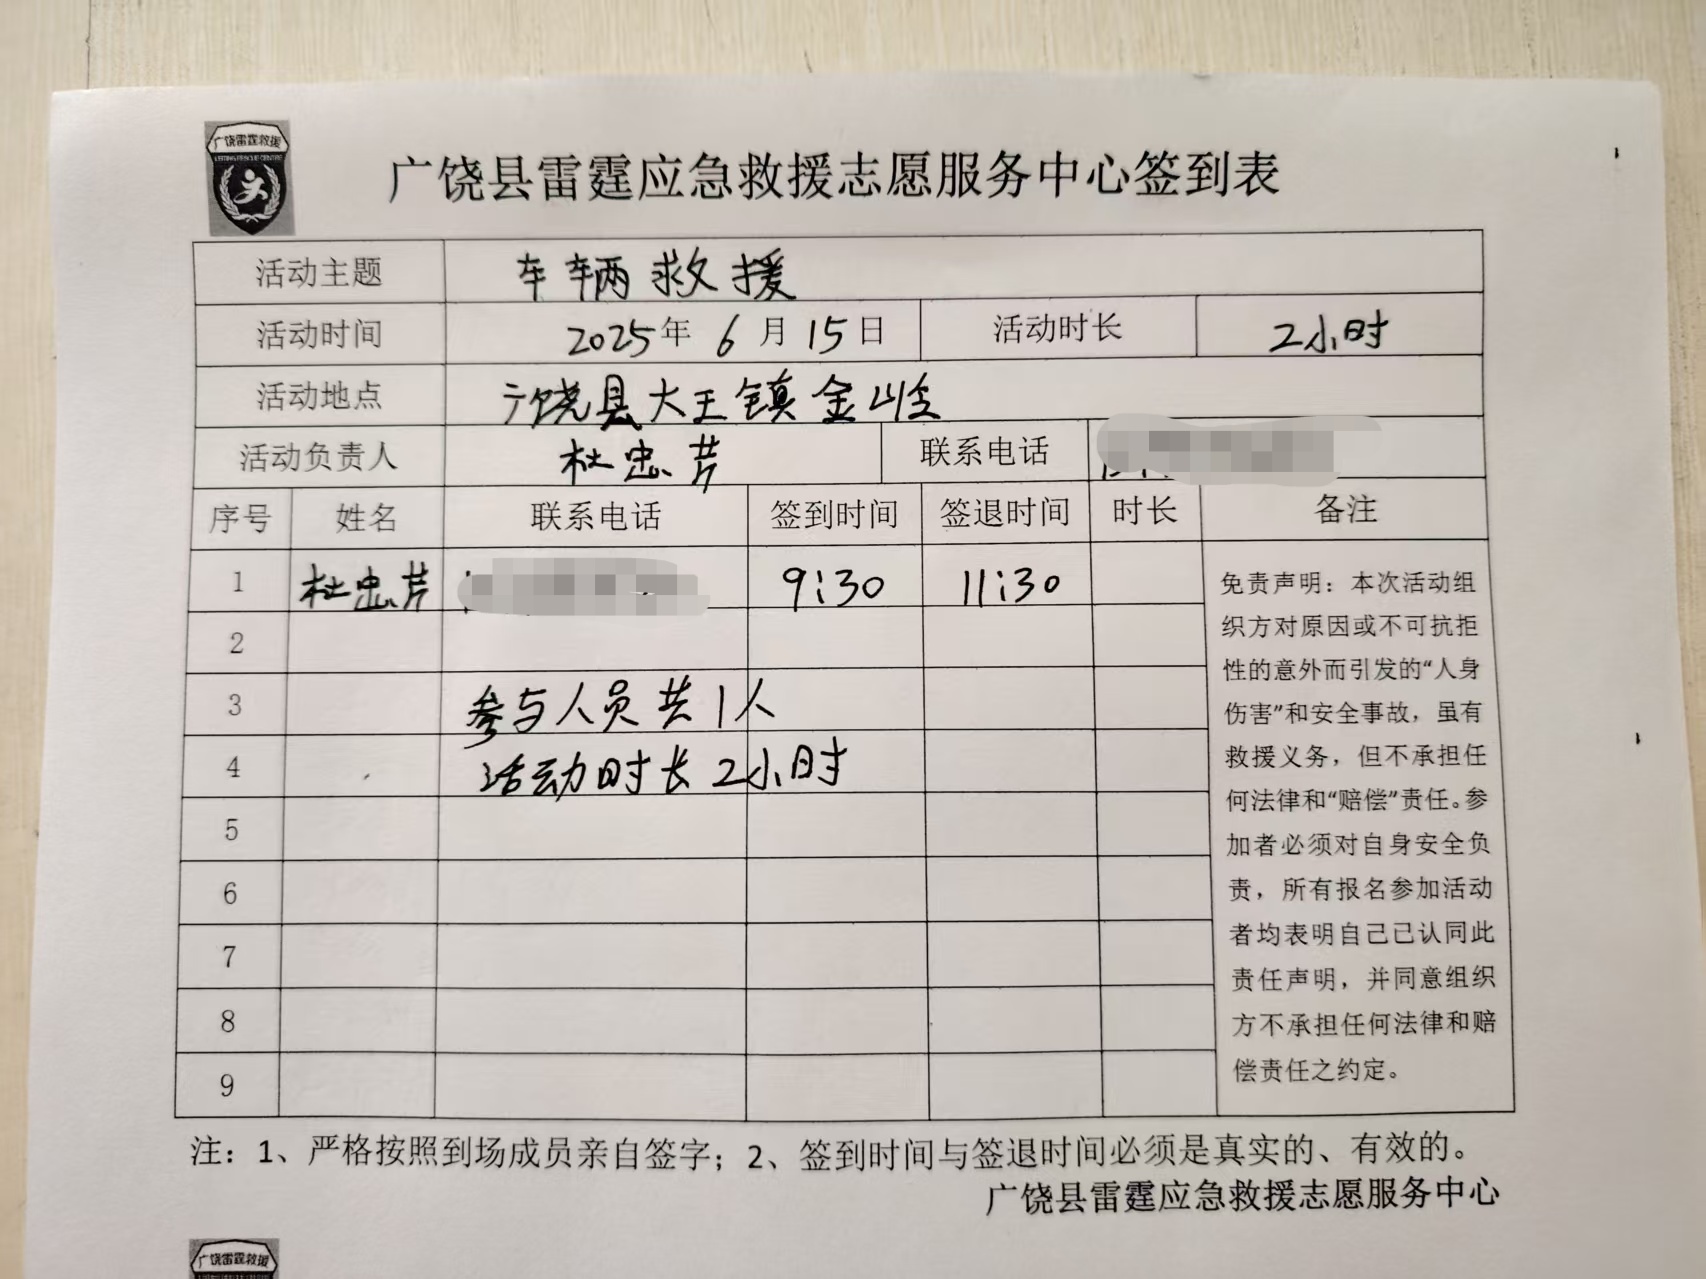 广饶雷霆救援
广饶县雷霆应急救援志愿服务中心签到表
活动主题 车辆救援
活动时间 2025年6月15日 活动时长 2小时
活动地点 广饶县大王镇金岭
活动负责人 杜忠芹 联系电话
序号 姓名 联系电话 签到时间 签退时间 时长 备注
1 杜忠芹 9:30 11:30
2
3 参与人员共1人
4 活动时长2小时
5
6
7
8
9
免责声明：本次活动组
织方对原因或不可抗拒
性的意外而引发的“人身
伤害”和安全事故，虽有
救援义务，但不承担任
何法律和“赔偿”责任。参
加者必须对自身安全负
责，所有报名参加活动
者均表明自己已认同此
责任声明，并同意组织
方不承担任何法律和赔
偿责任之约定。
注：1、严格按照到场成员亲自签字；2、签到时间与签退时间必须是真实的、有效的。
广饶县雷霆应急救援志愿服务中心
广饶雷霆救援